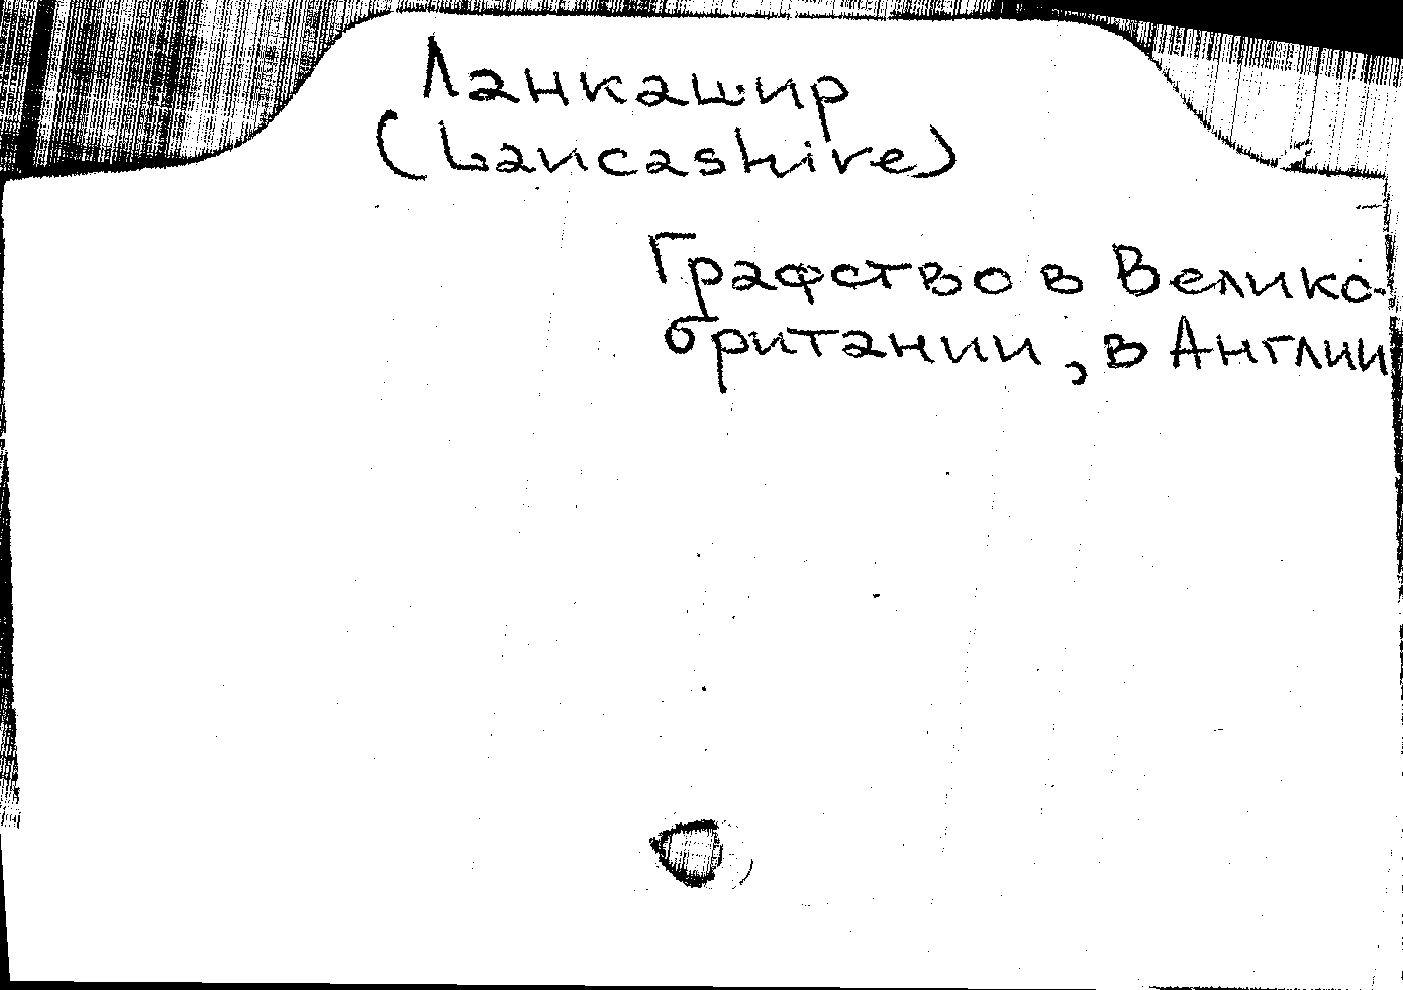 Ланкашир
(Lancashire)
Графство в Велико-
британии, в Англии